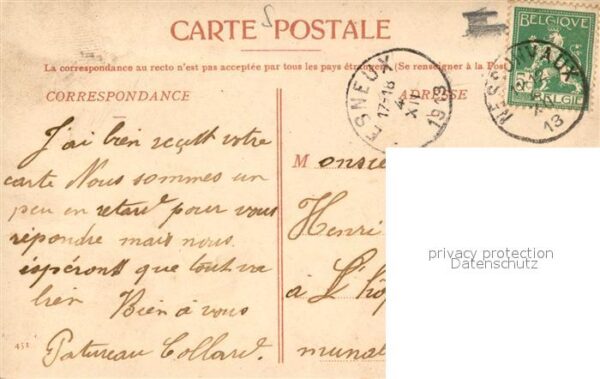 CARTE POSTALE
La correspondance au recto n'est pas acceptée par tous les pays étrangers (Se renseigner à la Post
CORRESPONDANCE
ADRESSE
J'ai bien reçu votre
carte Nous sommes un
peu en retard pour vous
répondre mais nous
espérons que tout va
bien Bien à vous
Patureau Collard.
451
Monsie
Henri
à L'hop
muna
ESNEUX
17-18
4
XII
1913
BELGIQUE
BELGIE
5
NESSONVAUX
13
privacy protection
Datenschutz